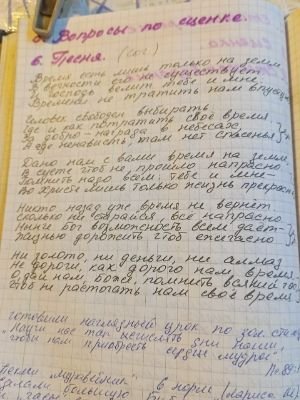 5. Вопросы по сценке.
6. Песня. (сог.)
Время есть лишь только на земле,
В вечности его не существует,
И Господь велит тебе и мне
Временем не тратить нам впустую
Человек свободен выбирать,
Где и как потратить своё время,
За добро награда в небесах,
А где ненависть, там нет спасенья
Дано нам с вами время на земле,
В суете чтоб не прошло напрасно
Помнить надо всем, тебе и мне
Во Христе лишь только жизнь прекрас
Никто назад уже время не вернёт,
Сколько ни старайся, всё напрасно
Нынче Бог возможность всем даёт
дорожить чтоб ежечасно
Ни золото, ни деньги, ни алмаз
Не дороги, как дорого нам время
О дай нам, Боже, помнить всякий
Чтоб не растратить нам своё время
готовили наглядный урок по зол. стих
"Научи нас так исчислять дни наши,
чтобы нам приобресть сердце мудрое".
Пс. 89:
Пекли муравейник
большую
6 норм (лариса